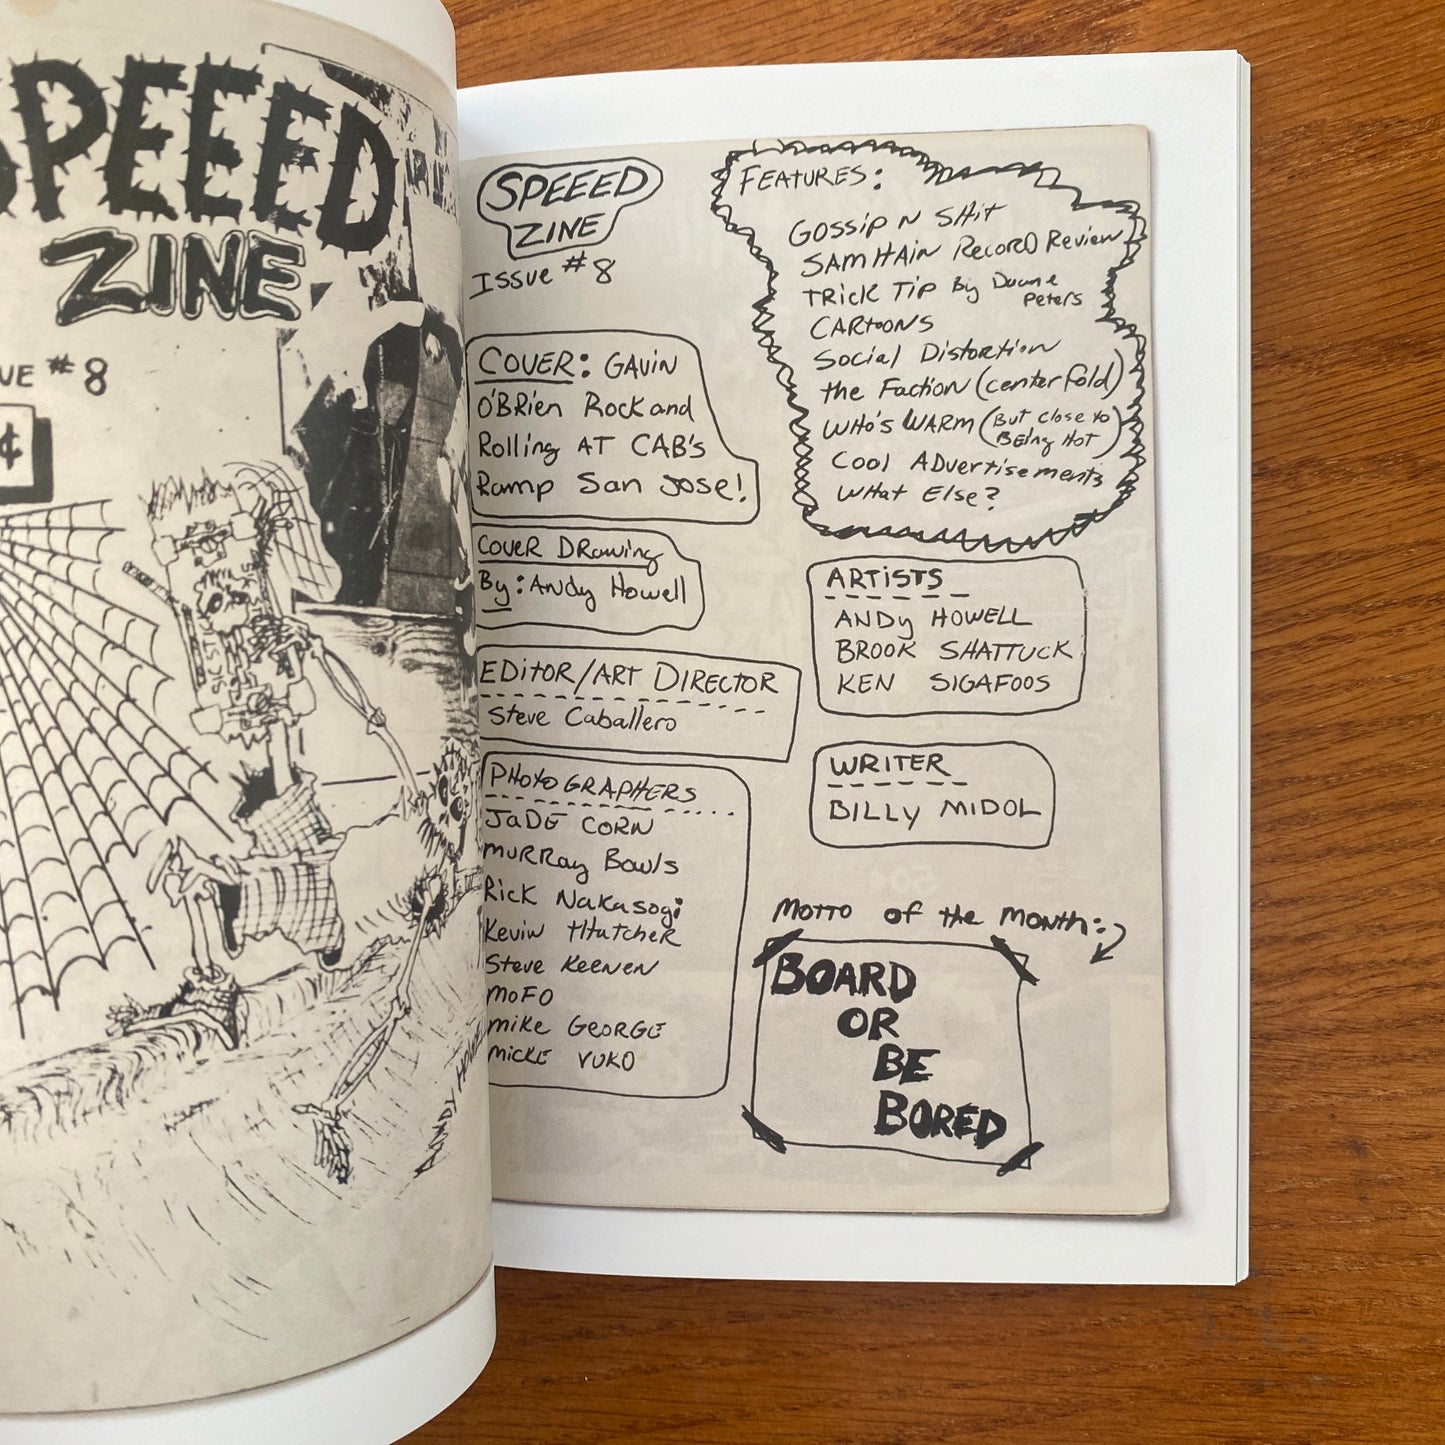 SPEEED
ZINE
UE #8
¢
ANDY HOWELL
SPEEED
ZINE
ISSUE #8
COVER: GAVIN
O'BRIEN ROCK and
Rolling AT CAB'S
Ramp San Jose!
COVER DRawing
By: ANdy Howell
EDITOR/ART DIRECTOR
Steve Caballero
PHOTOGRAPHERS
JaDE CORN
MURRay Bowls
Rick NaKasogi
Kevin THatcHeR
Steve KeeNEN
MOFO
mike GEORGE
MICKE VUKO
FEATURES:
GOSSip N SHit
SAMHAIN RecorD Review
TRick Tip By Duane
Peters
CARtoonS
Social Distortion
the Faction (centerfold)
WHO'S WARM (But close to
BEing Hot)
Cool ADvertisements
WHat Else?
ARTISTS
ANDy HOWELL
BROOK SHATTUCK
KEN SIGAFOOS
WRITER
BILLy MIDOL
MOTTO of the MONTH:
BOARD
OR
BE
BORED